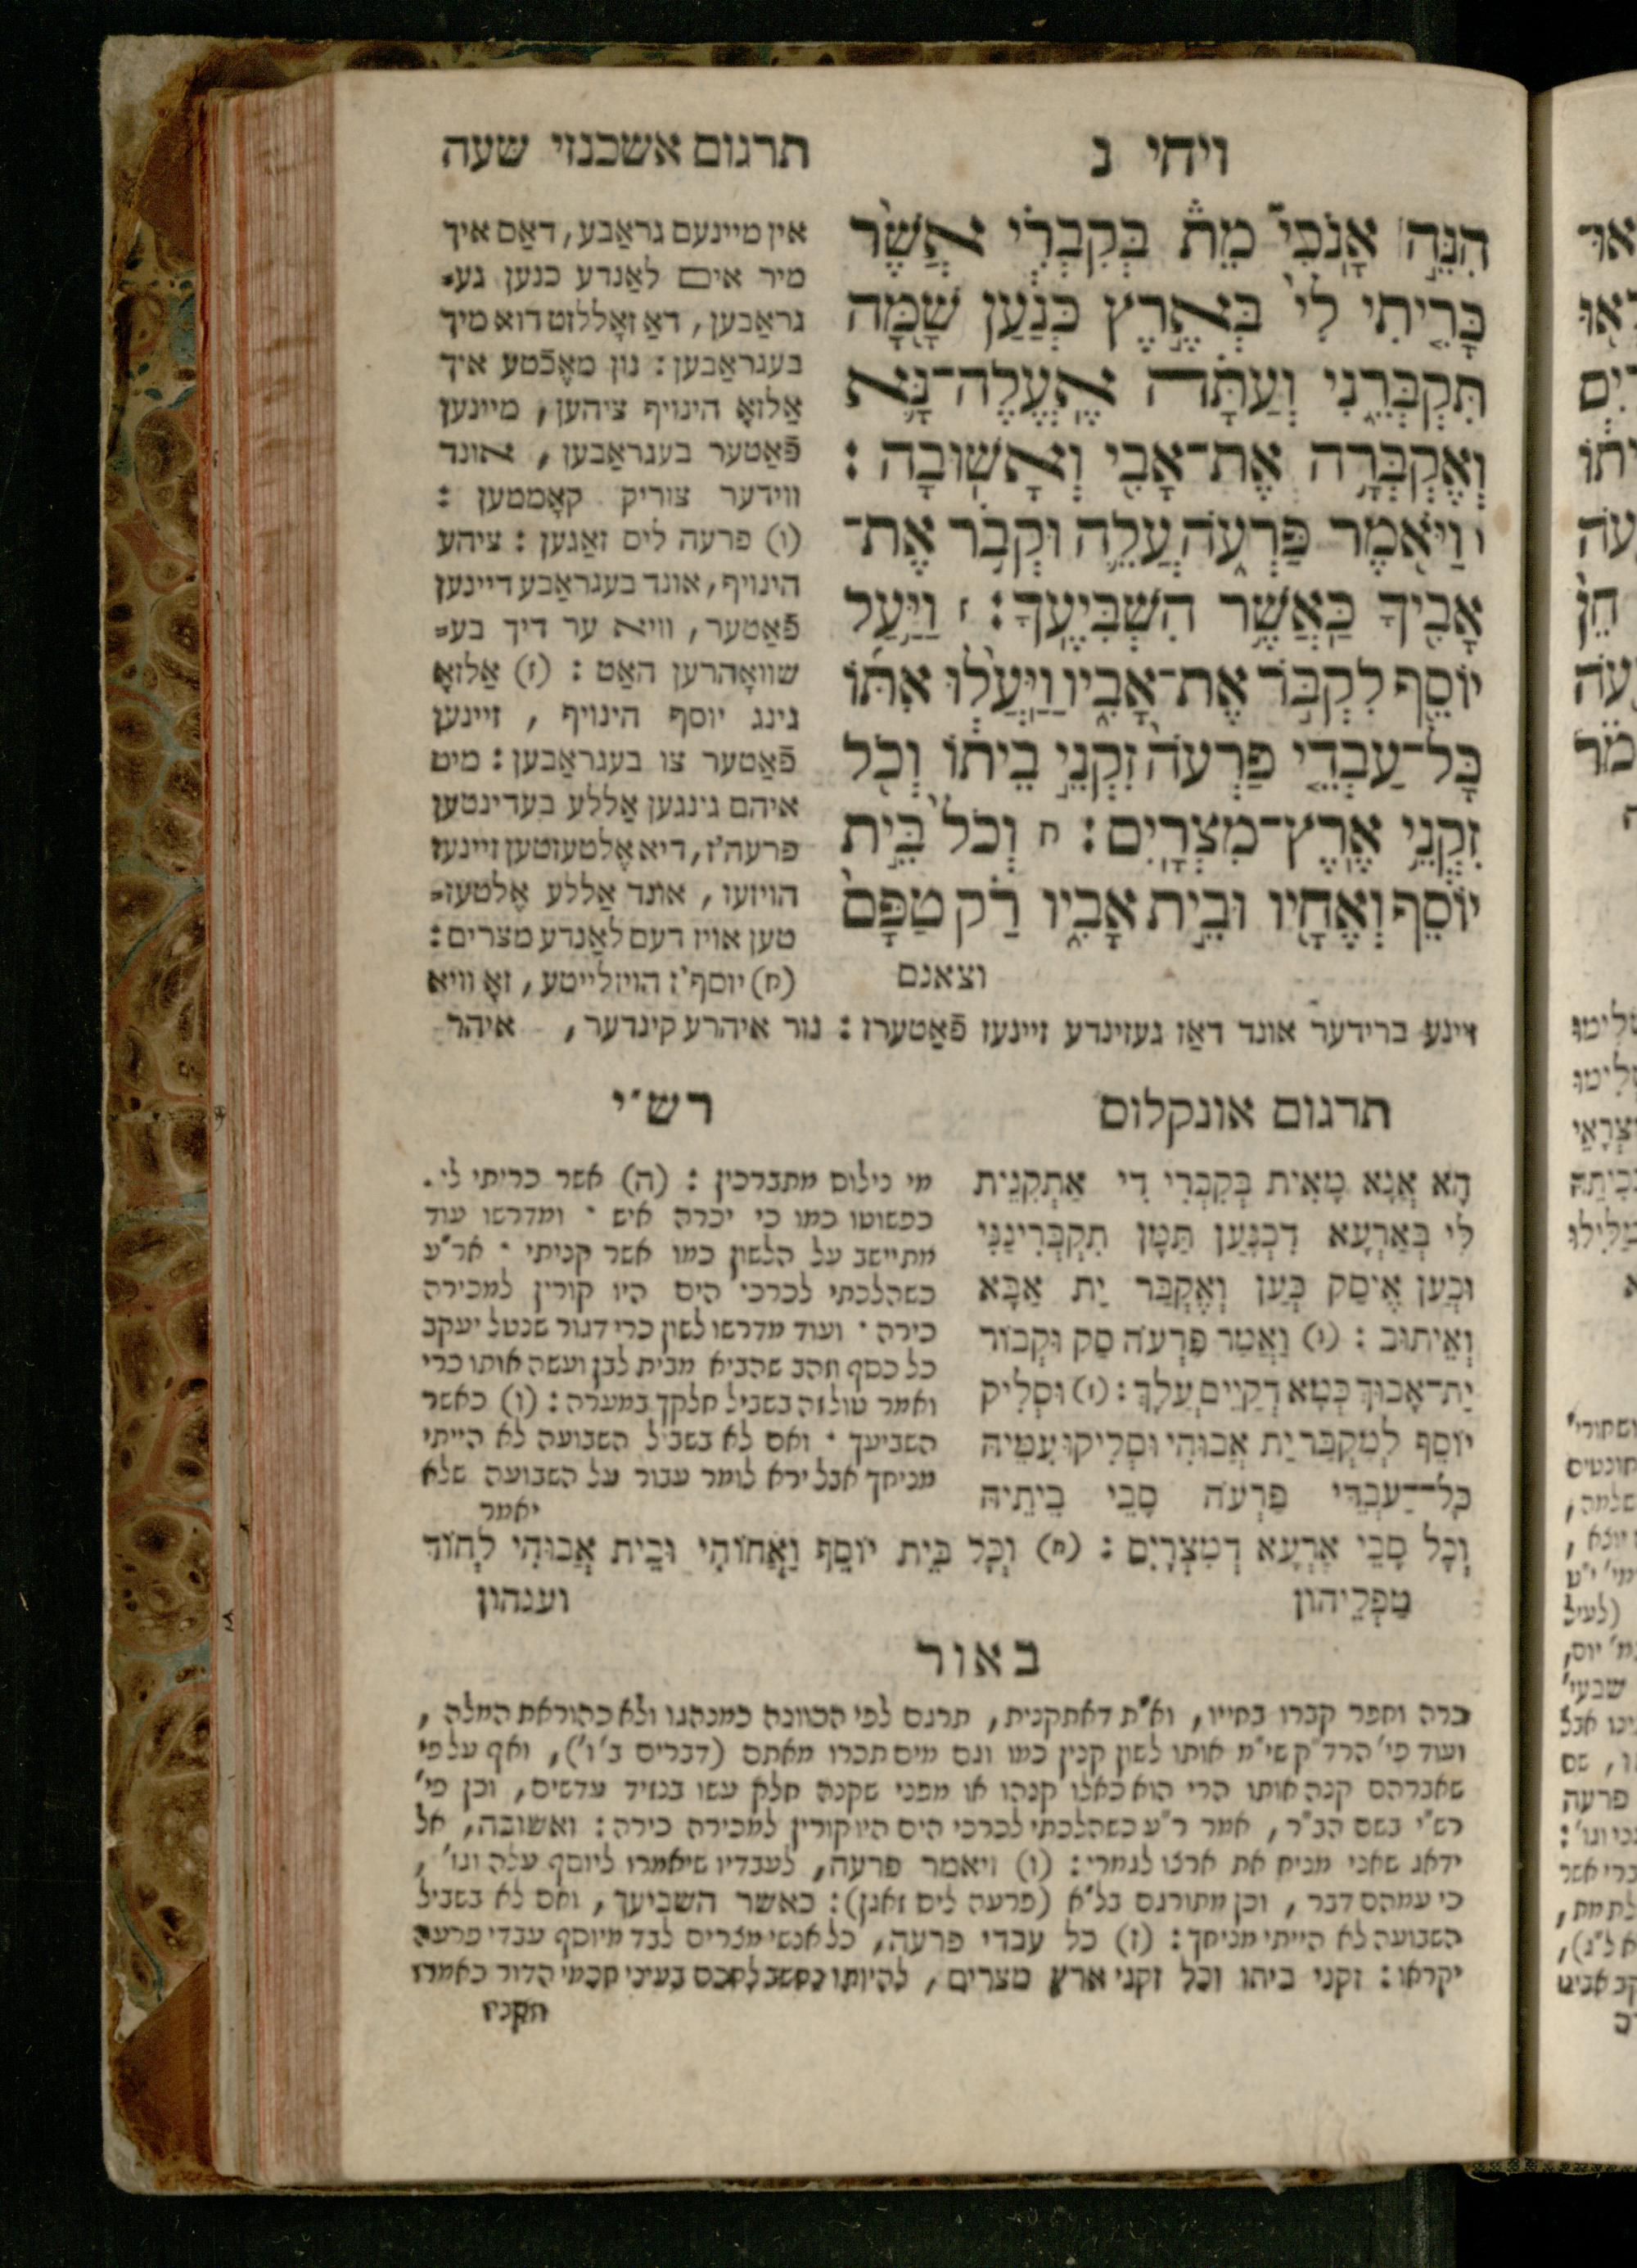 ויחי נ
תרגום אשכנזי שעה
הִנֵּ֣ה אָנֹכִי֮ מֵת֒ בְּקִבְרִ֗י אֲשֶׁ֨ר
כָּרִ֤יתִי לִי֙ בְּאֶ֣רֶץ כְּנַ֔עַן שָׁ֖מָּה
תִּקְבְּרֵ֑נִי וְעַתָּ֗ה אֶֽעֱלֶה־נָּ֛א
וְאֶקְבְּרָ֥ה אֶת־אָבִ֖י וְאָשֽׁוּבָה :
ו וַיֹּ֖אמֶר פַּרְעֹ֑ה עֲלֵ֛ה וּקְבֹ֥ר אֶת־
אָבִ֖יךָ כַּאֲשֶׁ֥ר הִשְׁבִּיעֶֽךָ : ז וַיַּ֥עַל
יוֹסֵ֖ף לִקְבֹּ֣ר אֶת־אָבִ֑יו וַיַּֽעֲל֨וּ אִתּ֜וֹ
כָּל־עַבְדֵ֤י פַרְעֹה֙ זִקְנֵ֣י בֵית֔וֹ וְכֹ֖ל
זִקְנֵ֥י אֶֽרֶץ־מִצְרָֽיִם : ח וְכֹל֙ בֵּ֣ית
יוֹסֵ֔ף וְאֶחָ֖יו וּבֵ֣ית אָבִ֑יו רַ֗ק טַפָּם֙
וצאנם
אין מיינעם גראַבע, דאַס איך
מיר אים לאַנדע כנען גע=
גראַבען, דאַ זאָללזט דוא מיך
בעגראַבען : נון מאֶכֿטע איך
אַלזאָ הינויף ציהען, מיינען
פֿאַטער בעגראַבען, אונד
ווידער צוריק קאָממען :
(ו) פרעה ליס זאַגען : ציהע
הינויף, אונד בעגראַבע דיינען
פֿאַטער, וויא ער דיך בע=
שוואָהרען האַט : (ז) אַלזאָ
גינג יוסף הינויף, זיינען
פֿאַטער צו בעגראַבען : מיט
איהם גינגען אַללע בעדינטען
פרעה'ז, דיא אֶלטעזטען זיינעז
הויזעז, אונד אַללע אֶלטעז=
טען אויז דעם לאַנדע מצרים :
(ח) יוסף'ז הויזלייטע, זאָ וויא
זיינע ברידער אונד דאַז געזינדע זיינעז פֿאַטערז : נור איהרע קינדער, איהר
תרגום אונקלוס
הָא אֲנָא מָאִית בְּקִבְרִי דִי אַתְקֵנִית
לִי בְּאַרְעָא דִכְנַעַן תַּמָּן תִּקְבְּרִינַנִּי
וּכְעַן אֶיסַק כְּעַן וְאֶקְבַּר יַת אַבָּא
וְאֵיתוּב : (ו) וַאֲמַר פַּרְעֹה סַק וּקְבוֹר
יַת־אָבוּךְ כְּמָא דְקַיֵים עֲלָךְ : (ז) וּסְלֵיק
יוֹסֵף לְמִקְבַּר יַת אֲבוּהִי וּסְלִיקוּ עִמֵיהּ
כָּל־עַבְדֵי פַרְעֹה סָבֵי בֵיתֵיהּ
וְכָל סָבֵי אַרְעָא דְמִצְרָיִם : (ח) וְכָל בֵּית יוֹסֵף וַאֲחוֹהִי וּבֵית אֲבוּהִי לְחוֹד
טַפְלֵיהוֹן
וענהון
רש״י
מי כילוס מתברכין : (ה) אשר כריתי לי.
כפשוטו כמו כי יכרה איש · ומדרשו עוד
מתיישב על הלשון כמו אשר קניתי · אר״ע
כשהלכתי לכרכי הים היו קורין למכירה
כירה · ועוד מדרשו לשון כרי דגור שנטל יעקב
כל כסף וזהב שהביא מבית לבן ועשה אותו כרי
ואמר טול זה בשביל חלקך במערה : (ו) כאשר
השביעך · ואם לא בשביל השבועה לא הייתי
מניחך אבל ירא לומר עבור על השבועה שלא
יאמר
באור
כרה וחפר קברו בחייו, וא״ת דאתקנית, תרגם לפי הכוונה כמנהגו ולא כהוראת המלה,
ועוד פי' הרד״ק שי״מ אותו לשון קנין כמו וגם מים תכרו מאתם (דברים ב'ו'), ואף על פי
שאברהם קנה אותו הרי הוא כאלו קנהו או מפני שקנה חלק עשו בנזיד עדשים, וכן פי'
רש״י בשם הב״ר, אמר ר״ע כשהלכתי לכרכי הים היו קורין למכירה כירה : ואשובה, אל
ידאג שאני מניח את ארצו לגמרי : (ו) ויאמר פרעה, לעבדיו שיאמרו ליוסף עלה וגו',
כי עמהם דבר, וכן מתורגם בל״א (פרעה ליס זאגן) : כאשר השביעך, ואם לא בשביל
השבועה לא הייתי מניחך : (ז) כל עבדי פרעה, כל אנשי מצרים לבד מיוסף עבדי פרעה
יקראו : זקני ביתו וכל זקני ארץ מצרים, להיותו נחשב לחכם בעיני חכמי הדור כאמרו